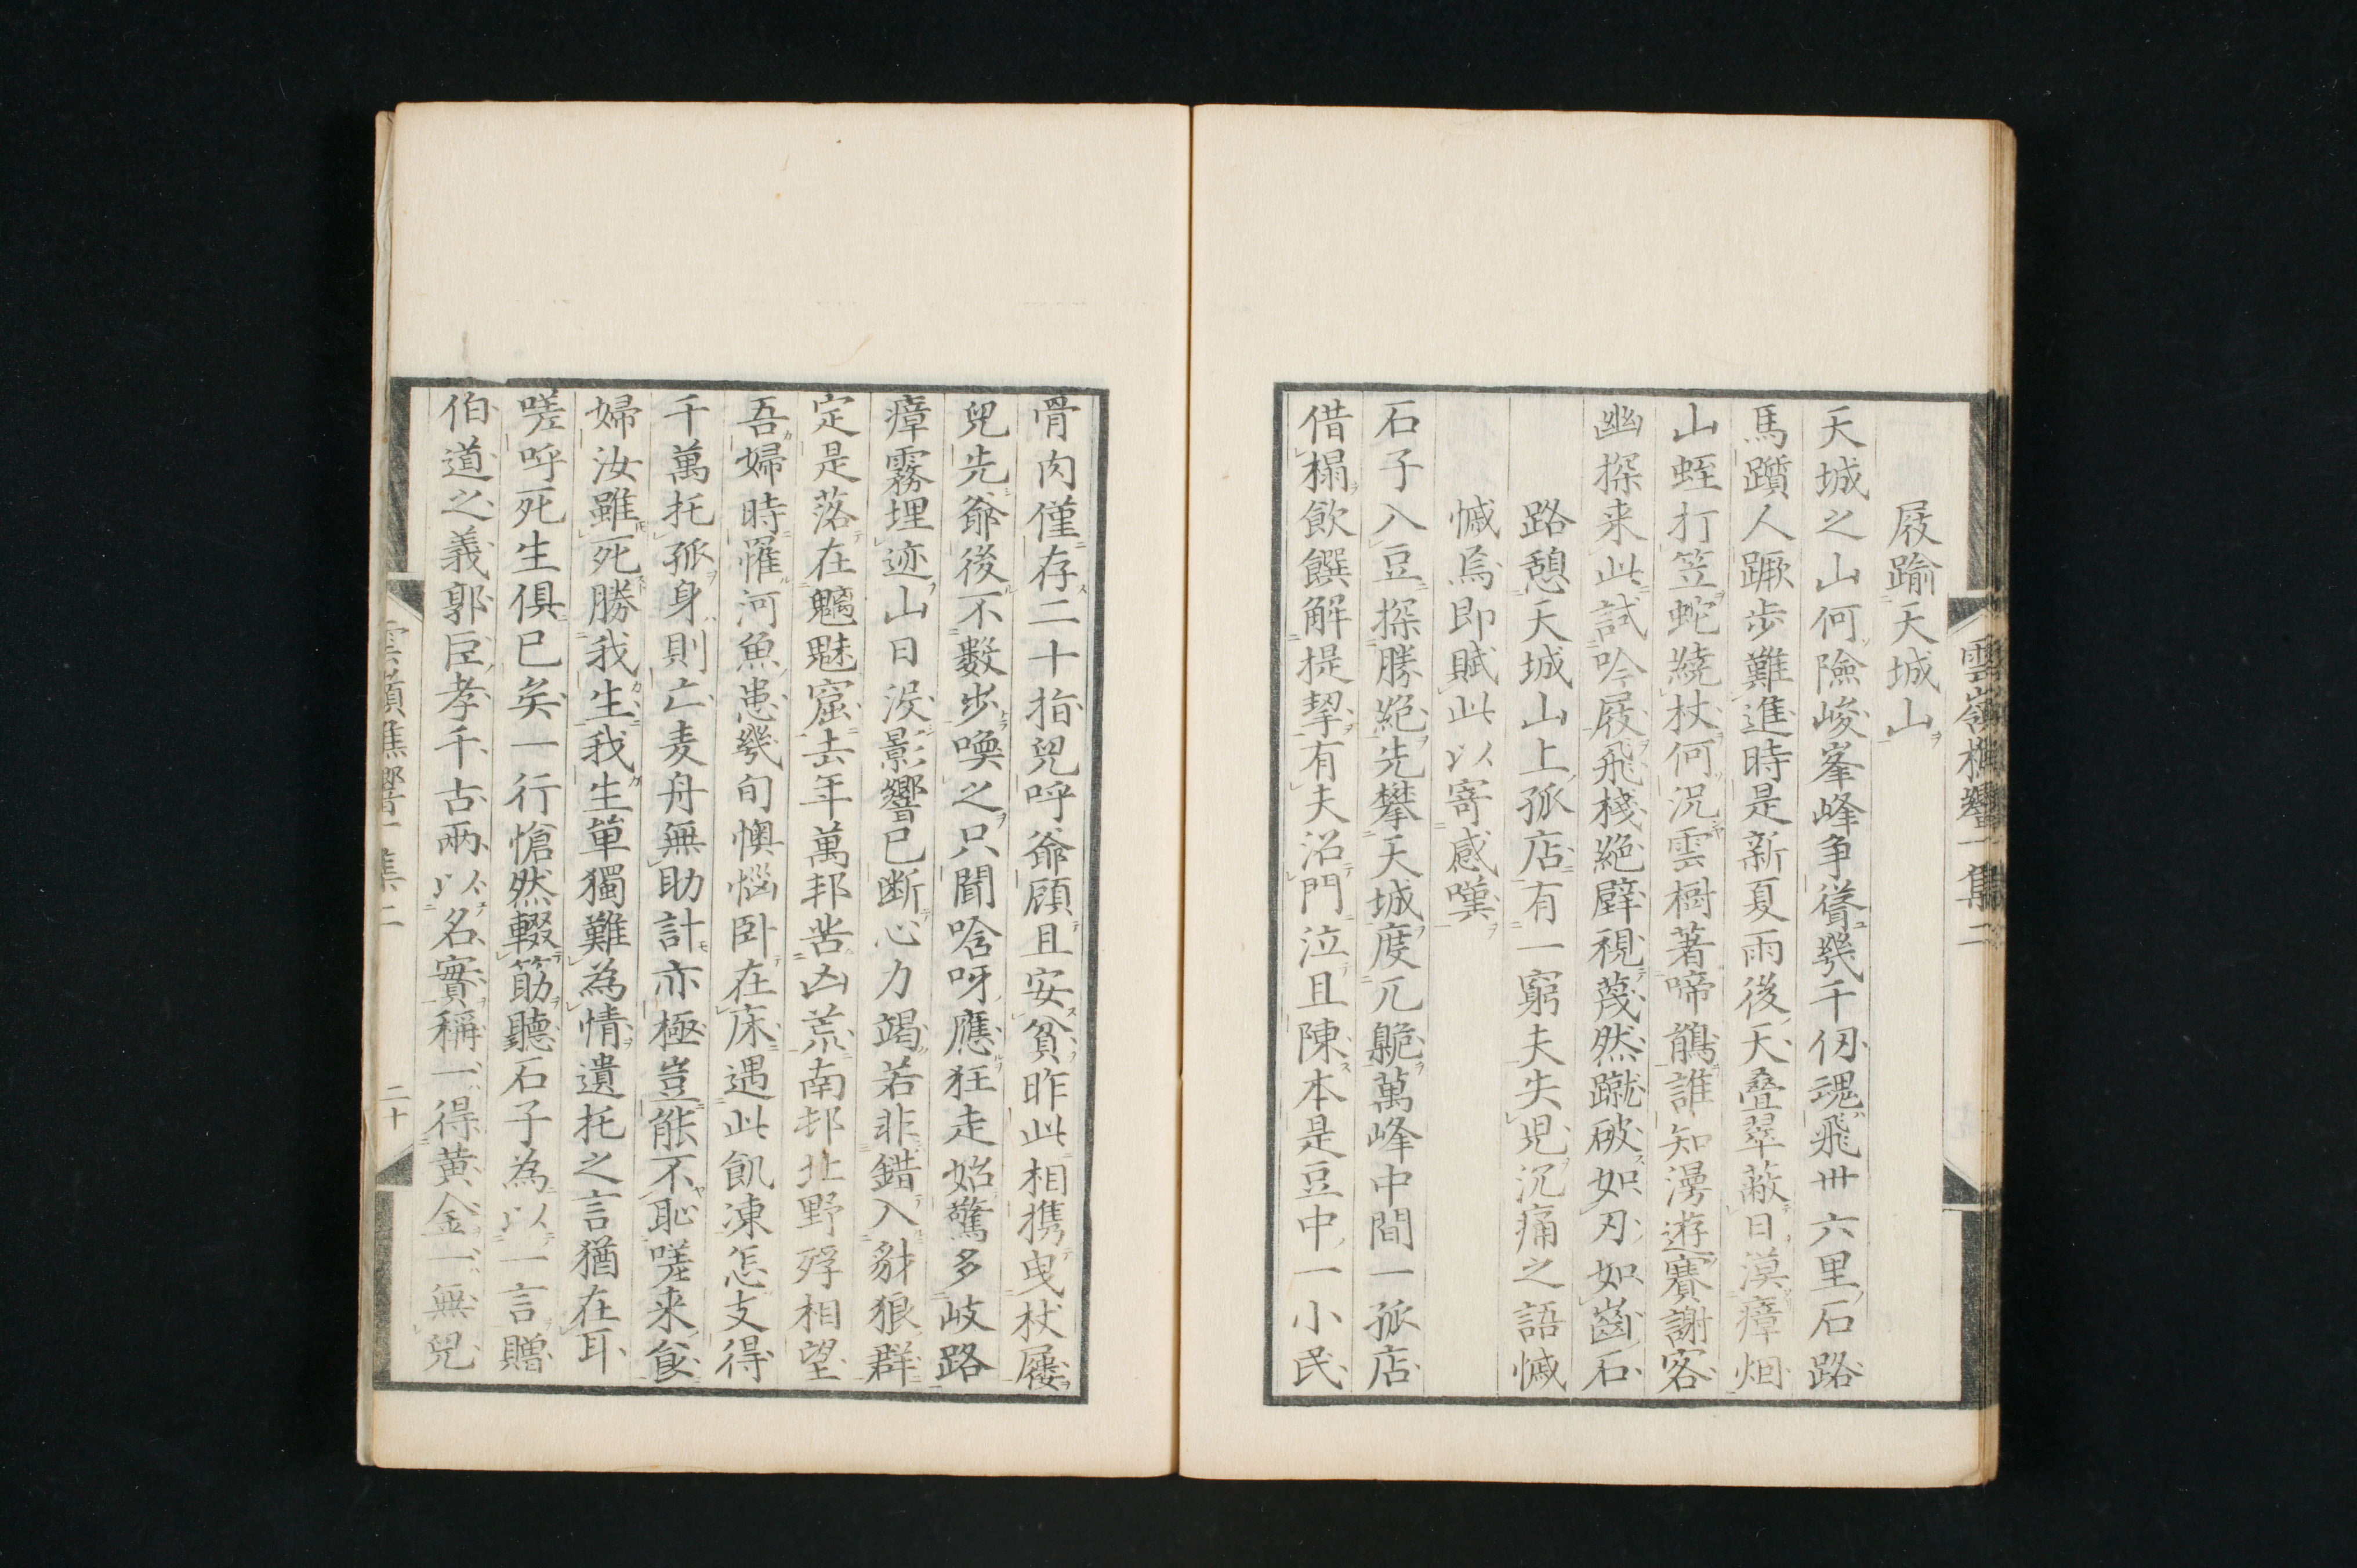 屐踰天城山
天城之山何險峻峯峰争聳幾千仞魂飛卅六里石路
馬躓人蹶歩難進時是新夏雨後天叠翠蔽日漠瘴烟
山蛭打笠蛇繞杖何況雲樹著啼鵑誰知漫遊賽謝客
幽探来此試吟屐飛棧絶壁視蔑然蹴破如刃如齒石
路憩天城山上孤店有一窮夫失児沉痛之語慽
慽焉即賦此以寄感嘆
石子入豆探勝絶先攀天城度兀臲萬峰中間一孤店
借榻飲饌解提挈有夫沿門泣且陳本是豆中一小民
雲嶺樵響一集二
骨肉僅存二十指兒呼爺顧且安貧昨此相携曳杖屨
兒先爺後不數歩喚之只聞唅呀應狂走始驚多岐路
瘴霧埋迹山日没影響已断心力竭若非錯入豺狼群
定是落在魑魅窟去年萬邦苦凶荒南邨北野殍相望
吾婦時罹河魚患幾旬懊惱卧在床遇此飢凍怎支得
千萬托孤身則亡麦舟無助計亦極豈能不恥嗟来食
婦汝雖死勝我生我生單獨難為情遺托之言猶在耳
嗟呼死生俱已矣一行愴然輟筋聽石子為以一言贈
伯道之義郭巨孝千古兩以名實稱一得黄金一無兒
雲嶺樵響一集二
二十